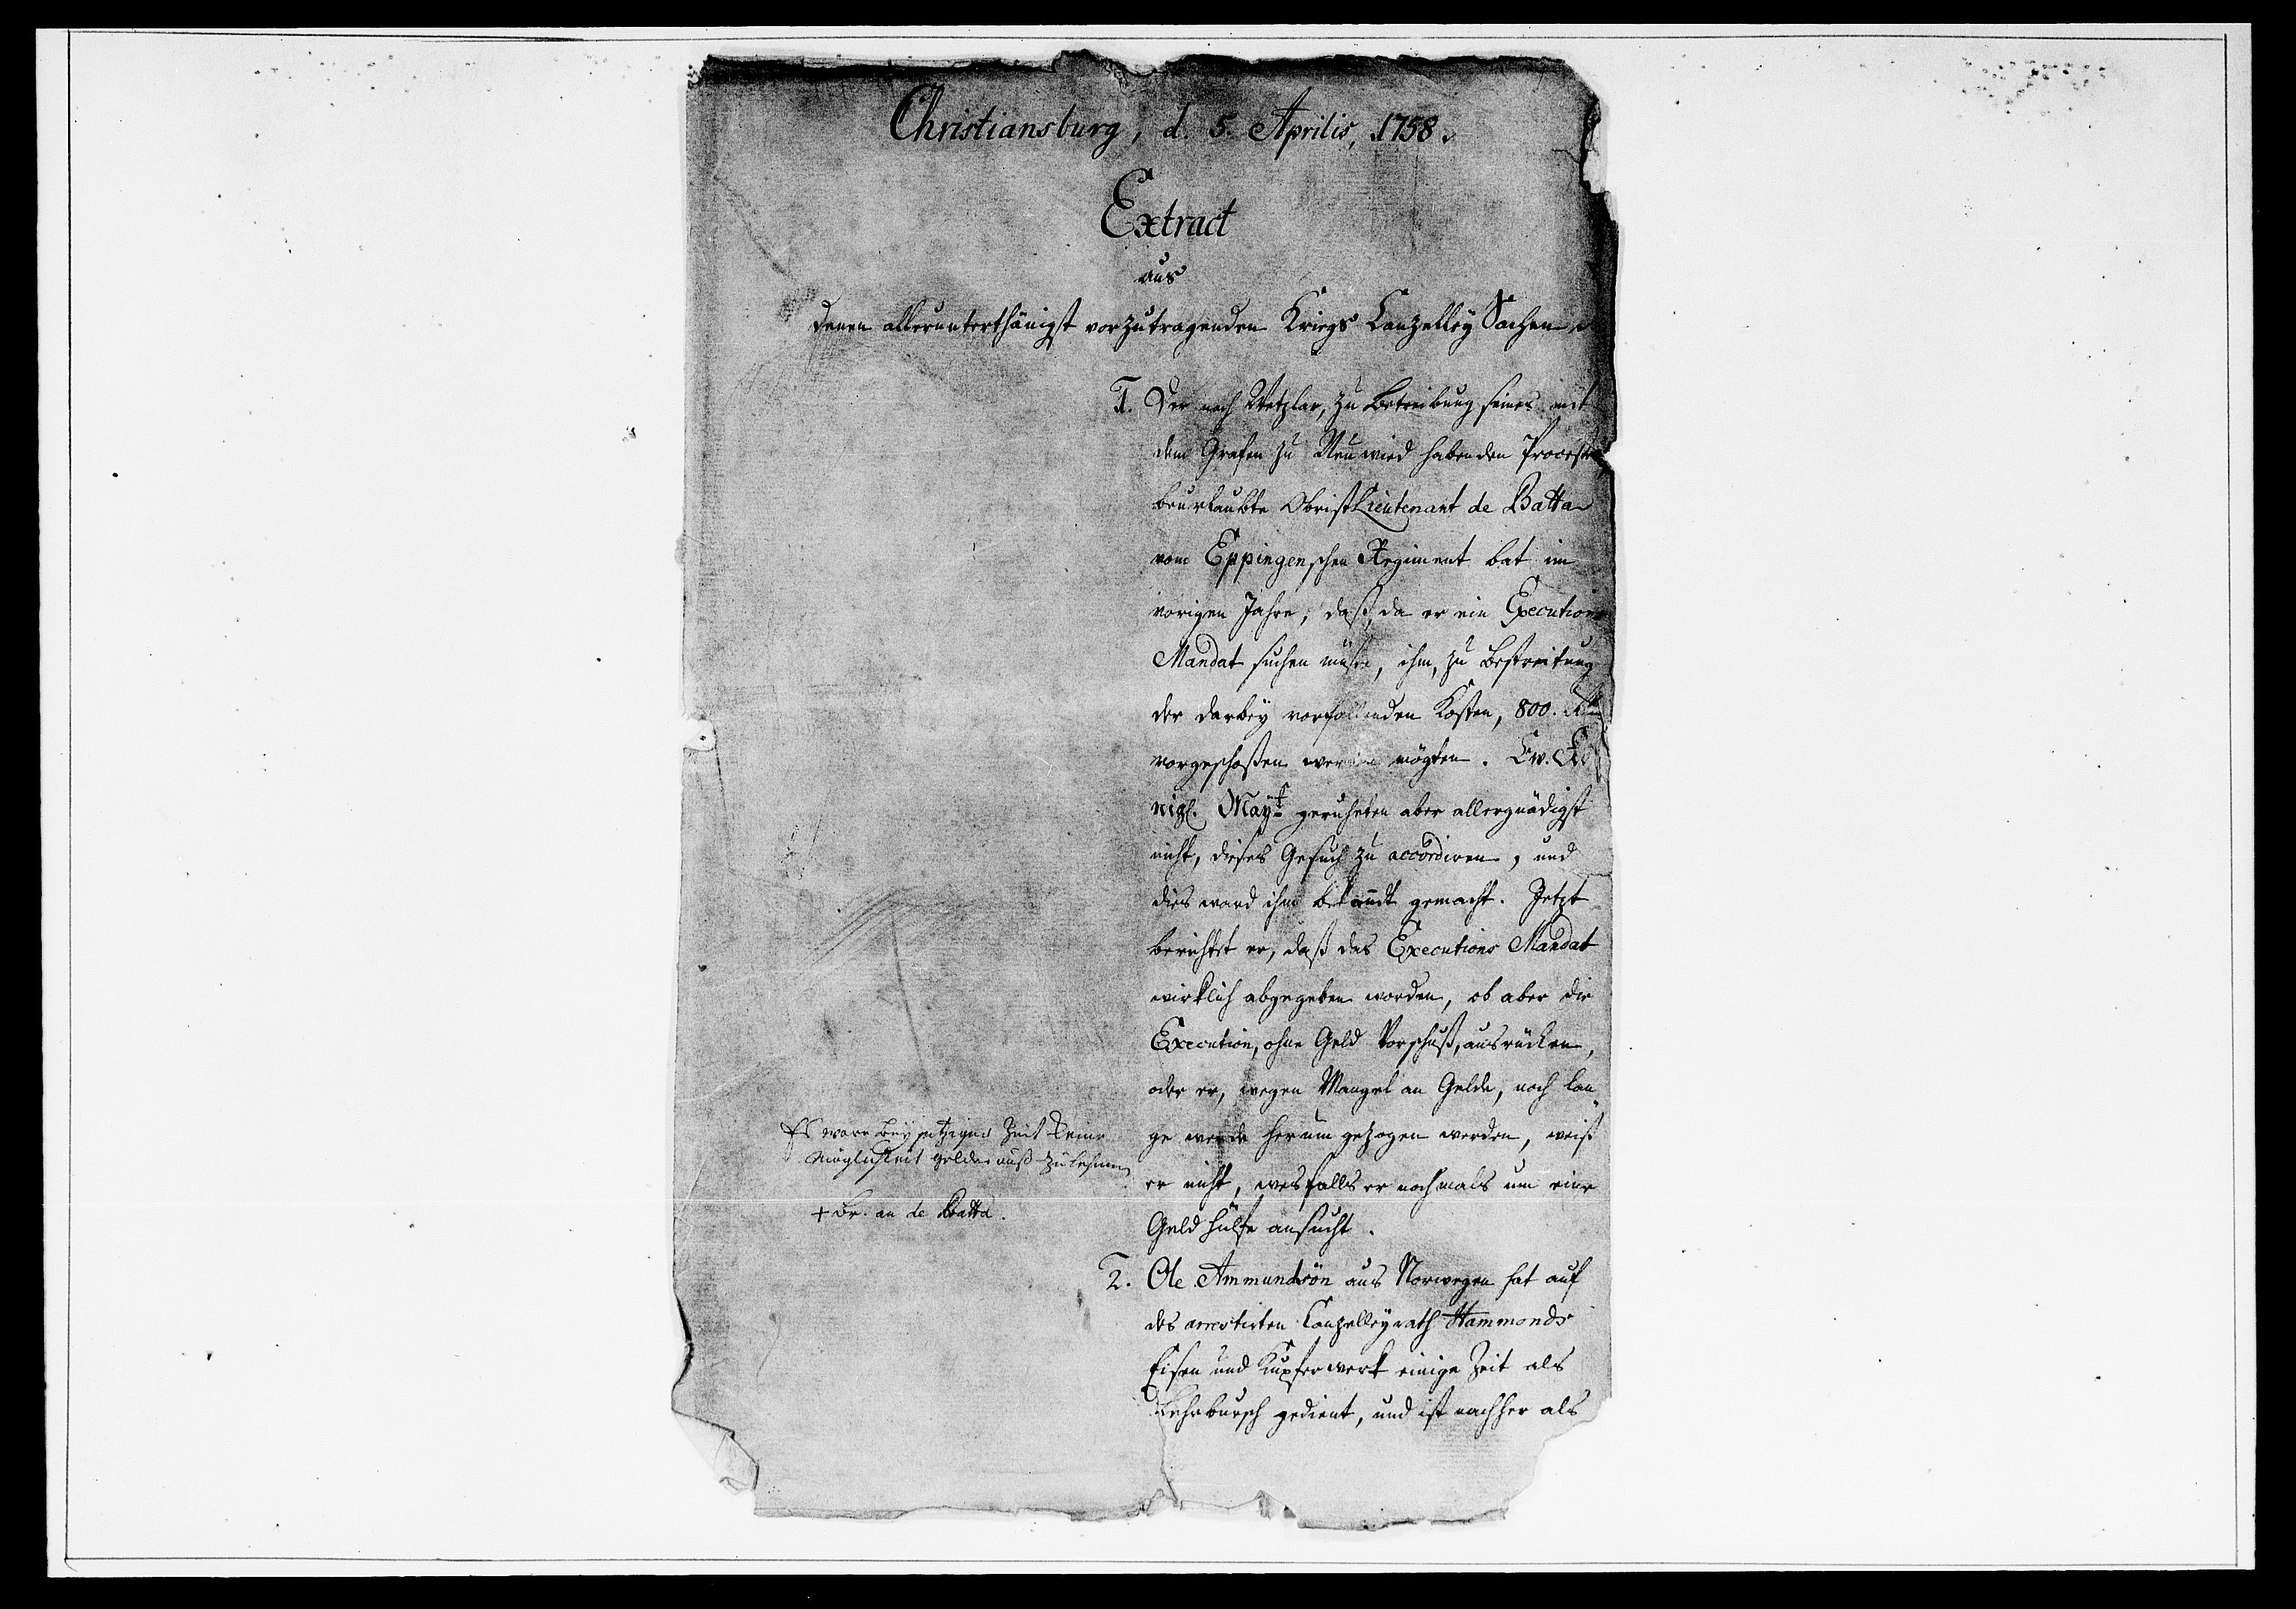 Christiansburg, d. 5. Aprilis, 1758.
Extract
aus
denen allerunterthänigst vorzutragenden Kriegs Canzelley Sachen
1. Der nach Wetzlar, zu Betreibung seines mit
dem Grafen zu Neuwied habenden Process
beurlaubte ObristLieutenant de Batta
vom Eppingenschen Regiment bat im
vorigen Jahre, daß, da er ein Executions
Mandat suchen müße, ihm, zu Bestreitung
der darbey vorfallenden Kosten, 800.
vorgeschoßen werden mögten. Ew. Kö
nigl. Mayt. geruheten aber allergnädigst
nicht, dieses Gesuch zu accordiren, und
dies ward ihm bekandt gemacht. Jetzt
berichtet er, daß das Executions Mandat
wirklich abgegeben worden, ob aber die
Execution, ohne Geld Vorschuß, ausrücken,
oder er, wegen Mangel an Gelde, noch lan
ge werde herum gezogen werden, weiß
er nicht, wesfalls er nochmals um eine
Geld hülfe ansucht.
Es ware bey jetziger Zeit keine
Möglichkeit gelder auß zu lehnen
+ Br. an de Batta.
2. Ole Ammundsön aus Norwegen hat auf
des arrestirten Canzelleyrath Hammonds
Eisen und Kupferwerk einige Zeit als
Lehrbursch gedient, und ist nachher als